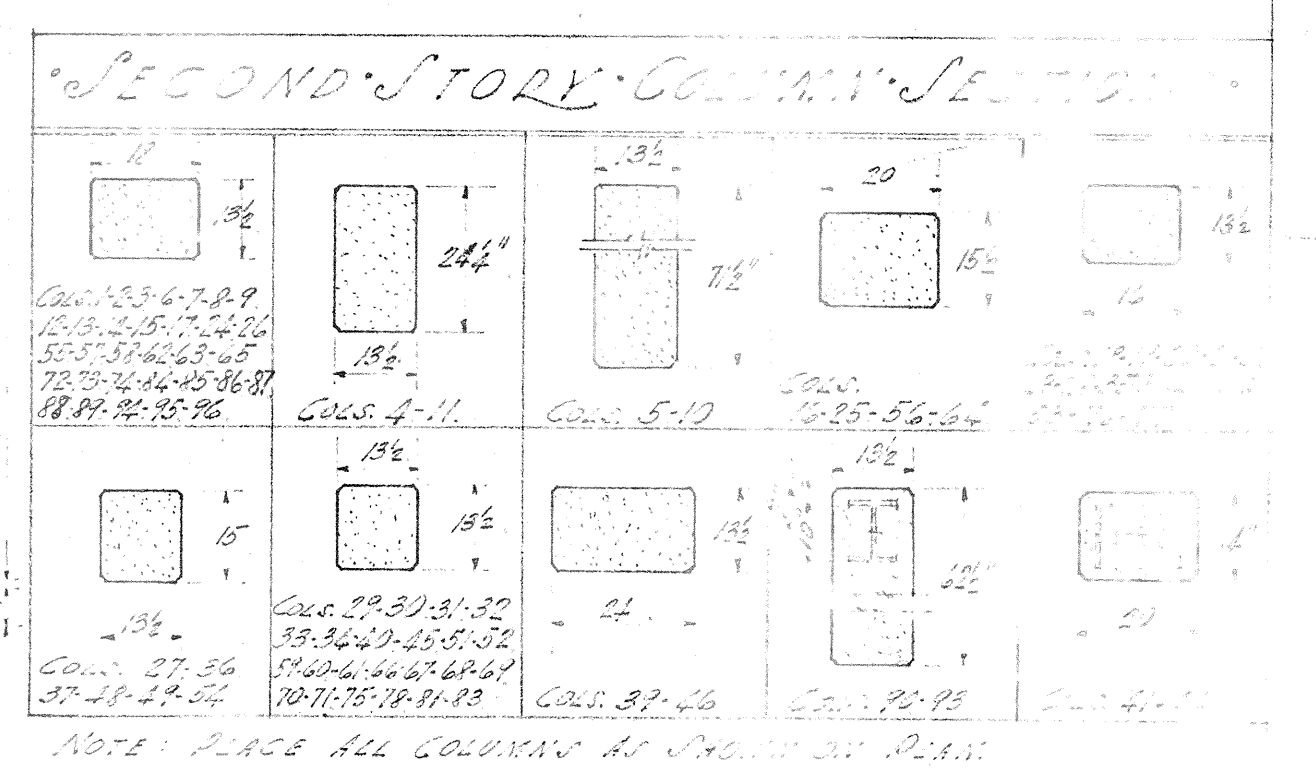 SECOND STORY COLUMN SECTIONS
18
13½
COLS. 1-2-3-6-7-8-9
12-13-14-15-17-24-26
55-57-58-62-63-65
72-73-74-84-85-86-87
88-89-94-95-96
24¼"
13½
COLS. 4-11.
13½
71½"
COLS. 5-10
20
15½
COLS.
16-25-56-64
13½
16
15
13½
COLS. 27-36
37-48-49-54
13½
13½
COLS. 29-30-31-32
33-34-40-45-51-52
59-60-61-66-67-68-69
70-71-75-78-81-83
13½
24
COLS. 39-46
13½
62½"
COLS. 90-93
20
NOTE: PLACE ALL COLUMNS AS SHOWN ON PLAN.